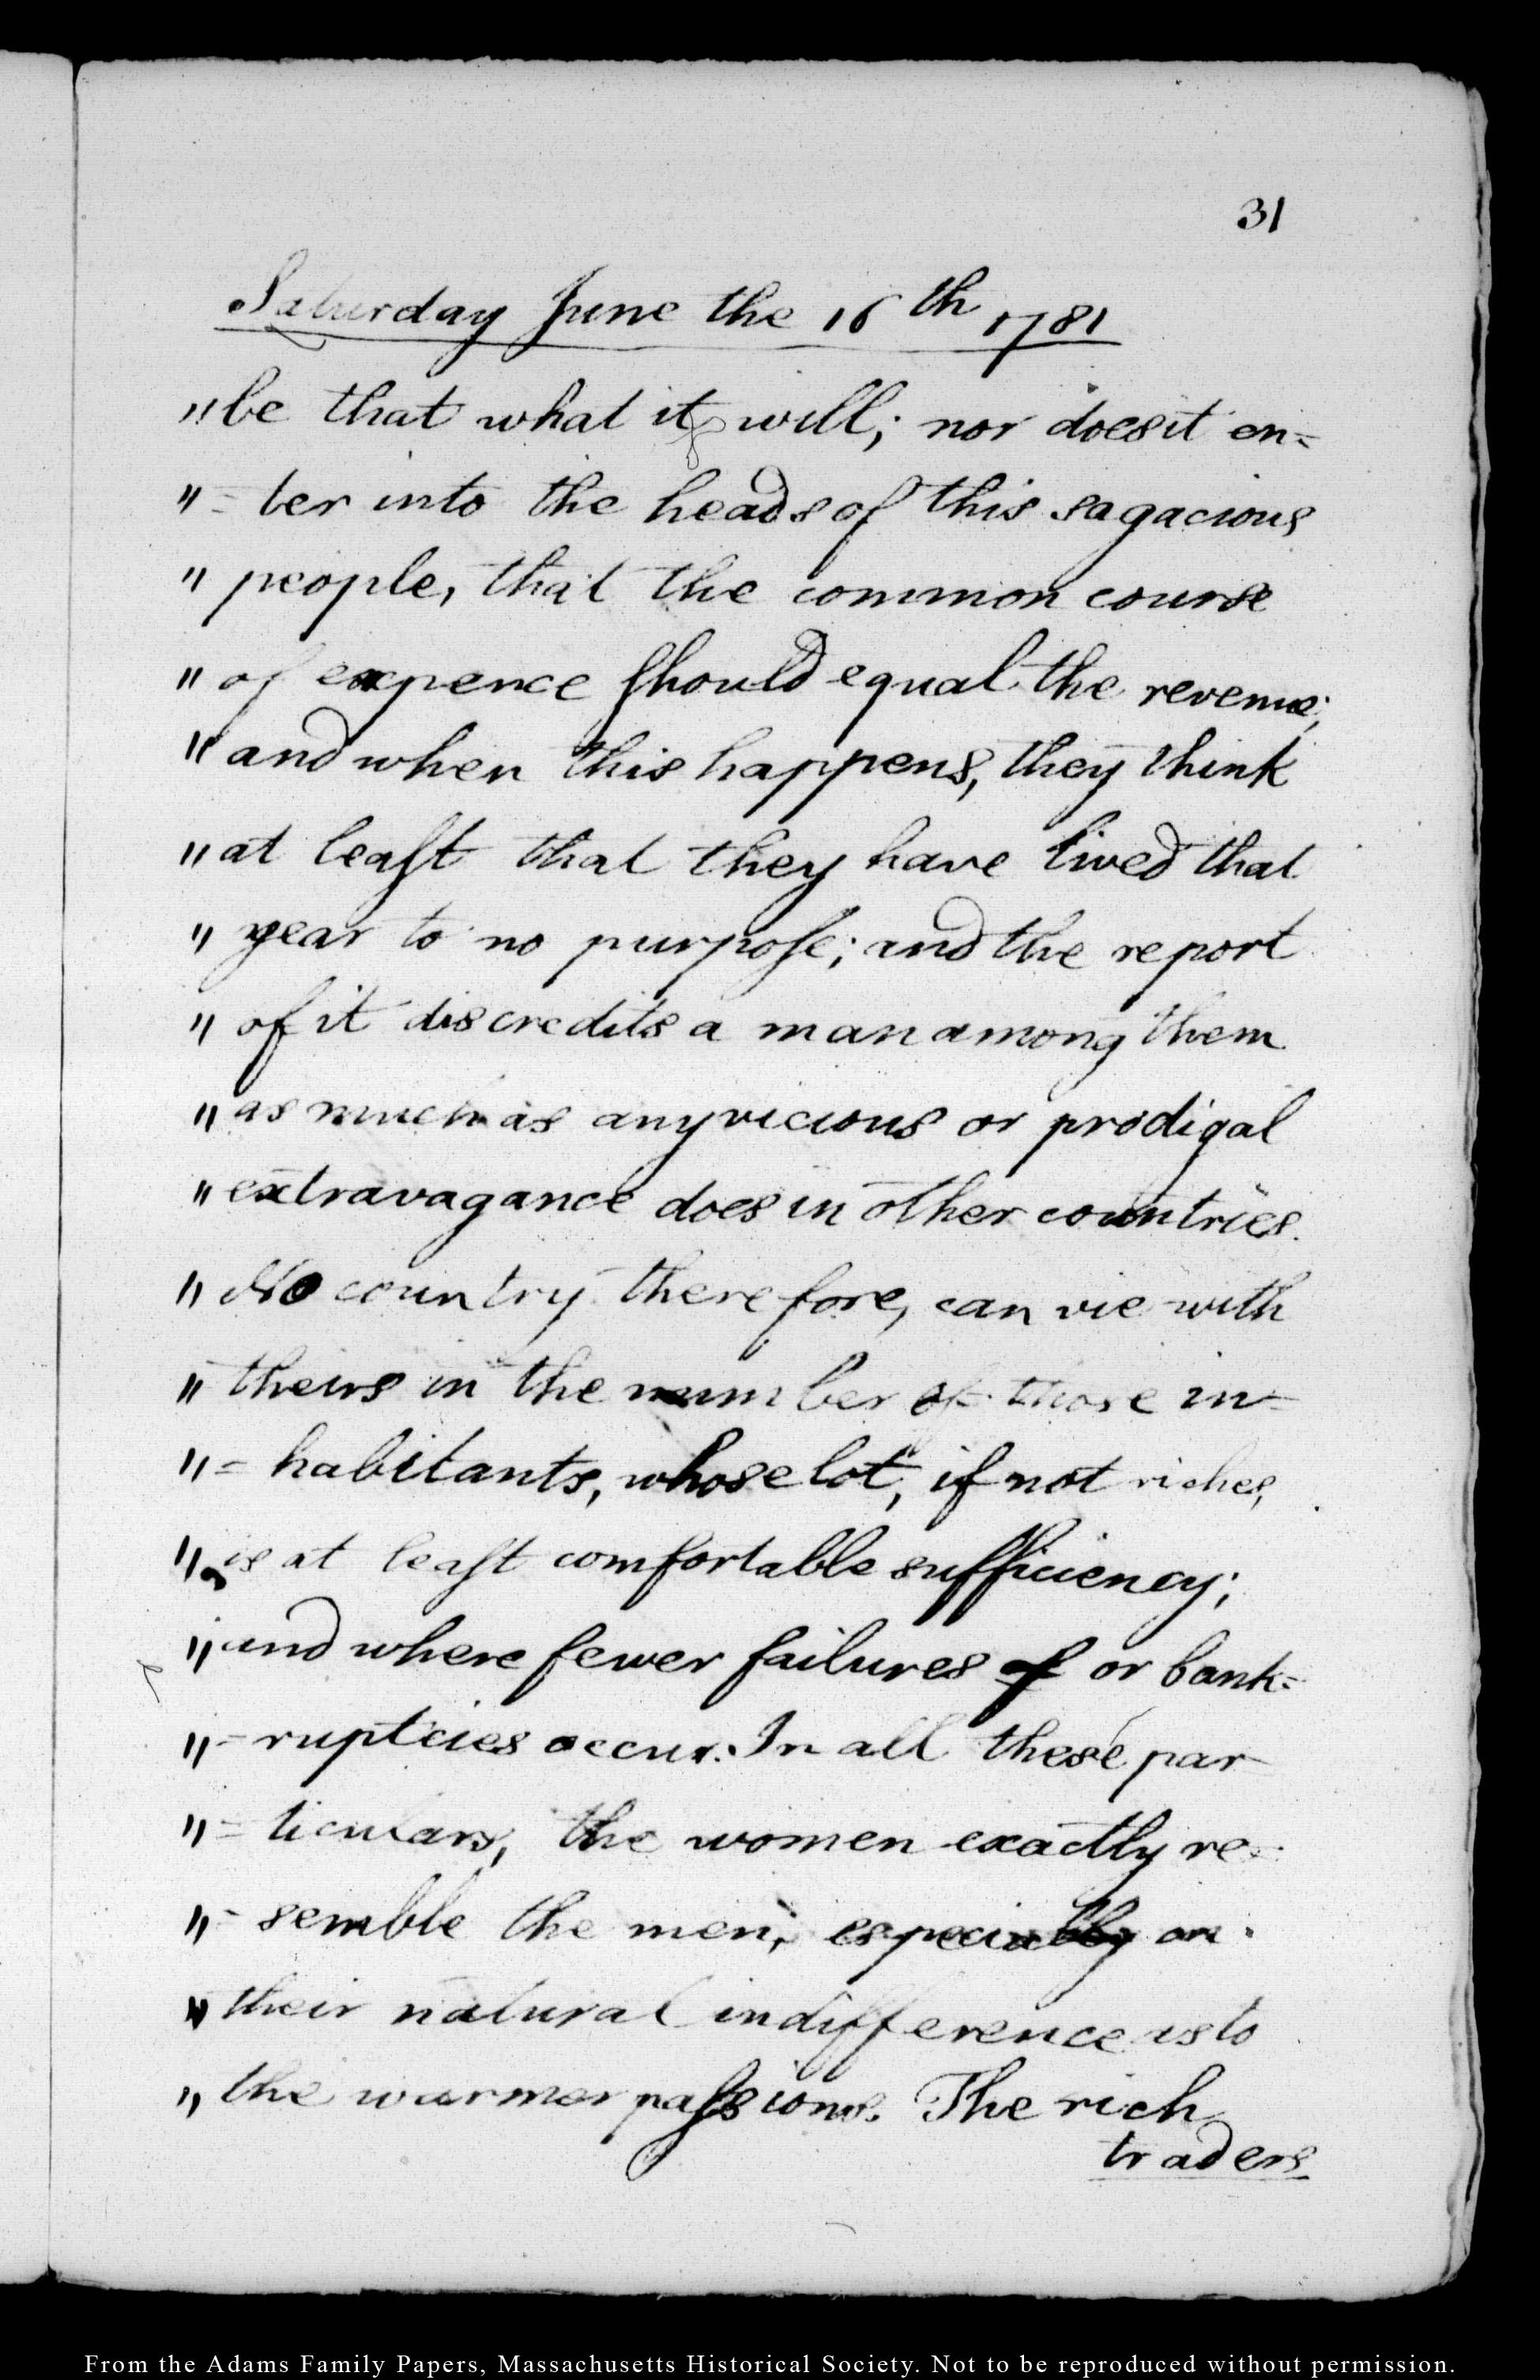 31
Saturday June the 16th 1781
"be that what it will; nor does it en=
"=ter into the heads of this sagacious
"people, that the common course
"of expence should equal the revenue;
"and when this happens, they think
"at least that they have lived that
"year to no purpose; and the report
"of it discredits a man among them
"as much as any vicious or prodigal
"extravagance does in other countries.
"No country therefore, can vie with
"theirs in the number of those in=
"=habitants, whose lot, if not riches,
"is at least comfortable sufficiency;
"and where fewer failures of or bank=
"=rupticies occur. In all these par
"=ticulars, the women exactly re=
"=semble the men, especially on
"their natural indifference as to
"the warmer passions. The rich
traders
From the Adams Family Papers, Massachusetts Historical Society. Not to be reproduced without permission.